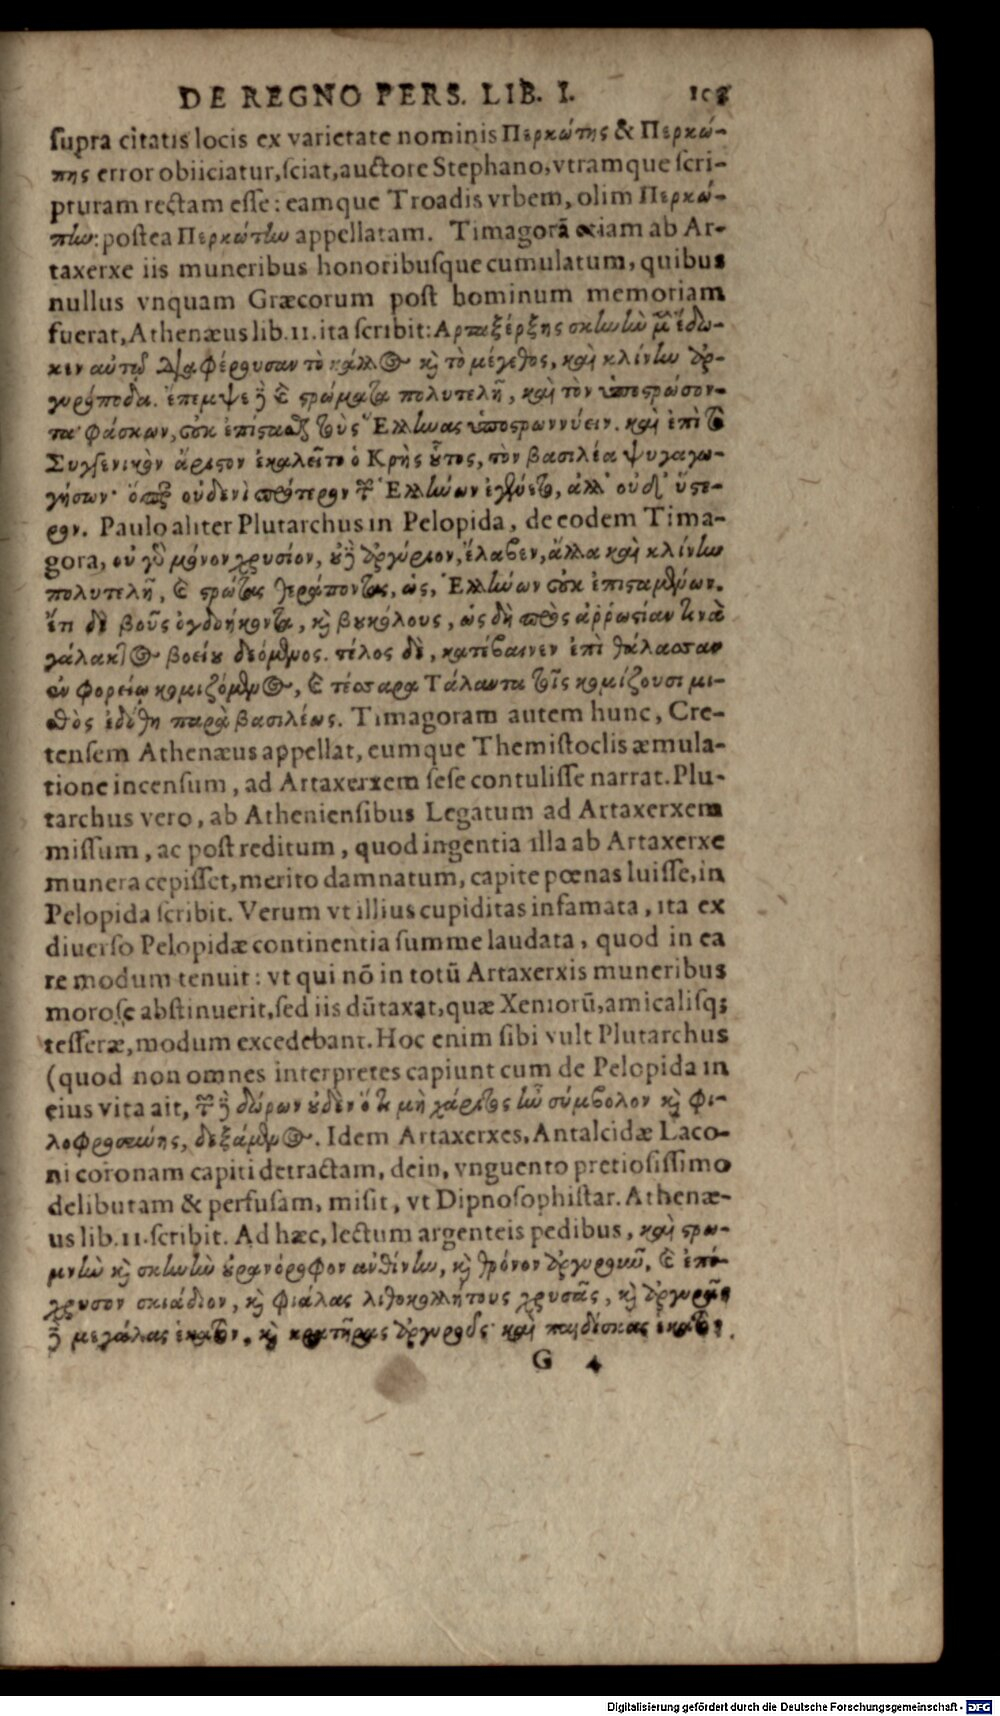 DE REGNO PERS. LIB. I.
supra citatis locis ex varietate nominis Περκώτης & Περκώ-
πης error obiiciatur, sciat, auctore Stephano, vtramque scri-
pturam rectam esse: eamque Troadis vrbem, olim Περκώ-
πην: postea Περκώτην appellatam. Timagorã etiam ab Ar-
taxerxe iis muneribus honoribusque cumulatum, quibus
nullus vnquam Græcorum post hominum memoriam
fuerat, Athenæus lib. 11. ita scribit: Αρταξέρξης σκηνὴν μὲν ἔδω-
κεν αὐτῷ διαφέρουσαν τὸ κάλλος καὶ τὸ μέγεθος, καὶ κλίνην ἀρ-
γυρόποδα. ἔπεμψε δὲ καὶ στρώματα πολυτελῆ, καὶ τὸν ὑποστρώσον-
τα φάσκων, οὐκ ἐπίστασθαι τοὺς Ἕλληνας ὑποστρωννύειν. καὶ ἐπὶ τὸ
Συγγενικὸν ἄριστον ἐκαλεῖτο ὁ Κρὴς οὗτος, τὸν βασιλέα ψυχαγω-
γήσων· ὅπερ οὐδενὶ πρότερον τῶν Ἑλλήνων ἐγένετο, ἀλλ' οὐδ' ὕστε-
ρον. Paulo aliter Plutarchus in Pelopida, de eodem Tima-
gora, οὐ γὰρ μόνον χρυσίον, οὐδὲ ἀργύριον, ἔλαβεν, ἀλλα καὶ κλίνην
πολυτελῆ, καὶ στρώτας θεράποντας, ὡς, Ἑλλήνων οὐκ ἐπισταμένων.
ἔτι δὲ βοῦς ὀγδοήκοντα, καὶ βουκόλους, ὡς δὴ πρὸς ἀῤῥωστίαν τινὰ
γάλακτος βοείου δεόμενος. τέλος δὲ, κατέβαινεν ἐπὶ θάλασσαν
ἐν φορείῳ κομιζόμενος, καὶ τέσσαρα Τάλαντα τοῖς κομίζουσι μι-
σθὸς ἐδόθη παρὰ βασιλέως. Timagoram autem hunc, Cre-
tensem Athenæus appellat, eumque Themistoclis æmula-
tione incensum, ad Artaxerxem sese contulisse narrat. Plu-
tarchus vero, ab Atheniensibus Legatum ad Artaxerxem
missum, ac post reditum, quod ingentia illa ab Artaxerxe
munera cepisset, merito damnatum, capite pœnas luisse, in
Pelopida scribit. Verum vt illius cupiditas infamata, ita ex
diuerso Pelopidæ continentia summe laudata, quod in ea
re modum tenuit: vt qui nõ in totũ Artaxerxis muneribus
morose abstinuerit, sed iis dũtaxat, quæ Xeniorũ, amicalisq;
tesseræ, modum excedebant. Hoc enim sibi vult Plutarchus
(quod non omnes interpretes capiunt cum de Pelopida in
eius vita ait, τῶν δὲ δώρων οὐδὲν ὅ τι μὴ χάριτος ἦν σύμβολον καὶ φι-
λοφροσύνης, δεξάμενος. Idem Artaxerxes, Antalcidæ Laco-
ni coronam capiti detractam, dein, vnguento pretiosissimo
delibutam & perfusam, misit, vt Dipnosophistar. Athenæ-
us lib. 11. scribit. Ad hæc, lectum argenteis pedibus, καὶ στρω-
μνὴν καὶ σκηνὴν οὐρανόροφον ἀνθίνην, καὶ θρόνον ἀργυροῦν, καὶ ἐπί-
χρυσον σκιάδιον, καὶ φιάλας λιθοκολλήτους χρυσᾶς, καὶ ἀργυρᾶς
δὲ μεγάλας ἑκατὸν, καὶ κρατῆρας ἀργυροῦς· καὶ παιδίσκας ἑκατὸν,
G 4
Digitalisierung gefördert durch die Deutsche Forschungsgemeinschaft - DFG